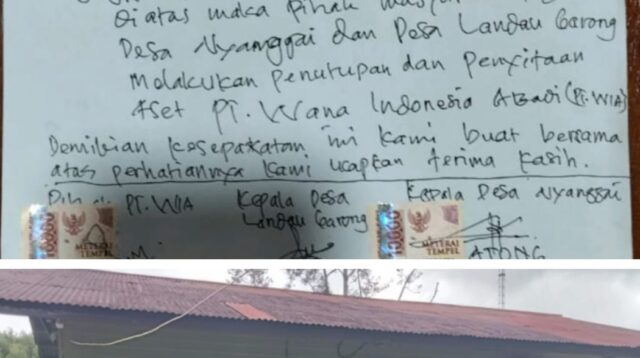 Diatas maka pihak
Desa Nyanggai dan Desa Landau Garong
Melakukan penutupan dan penyitaan
Aset PT. Wana Indonesia Abadi (PT. WIA)
Demikian kesepakatan ini kami buat bersama
atas perhatiannya kami ucapkan terima kasih.
PT. WIA Kepala Desa Kepala Desa Nyanggai
Landau Garong
10000 METERAI TEMPEL 10000 METERAI TEMPEL ATONG